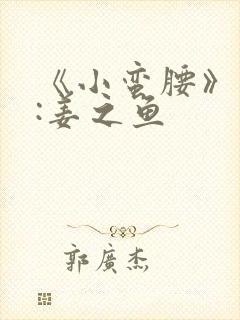 《小蛮腰》
:姜之鱼
郭廣杰